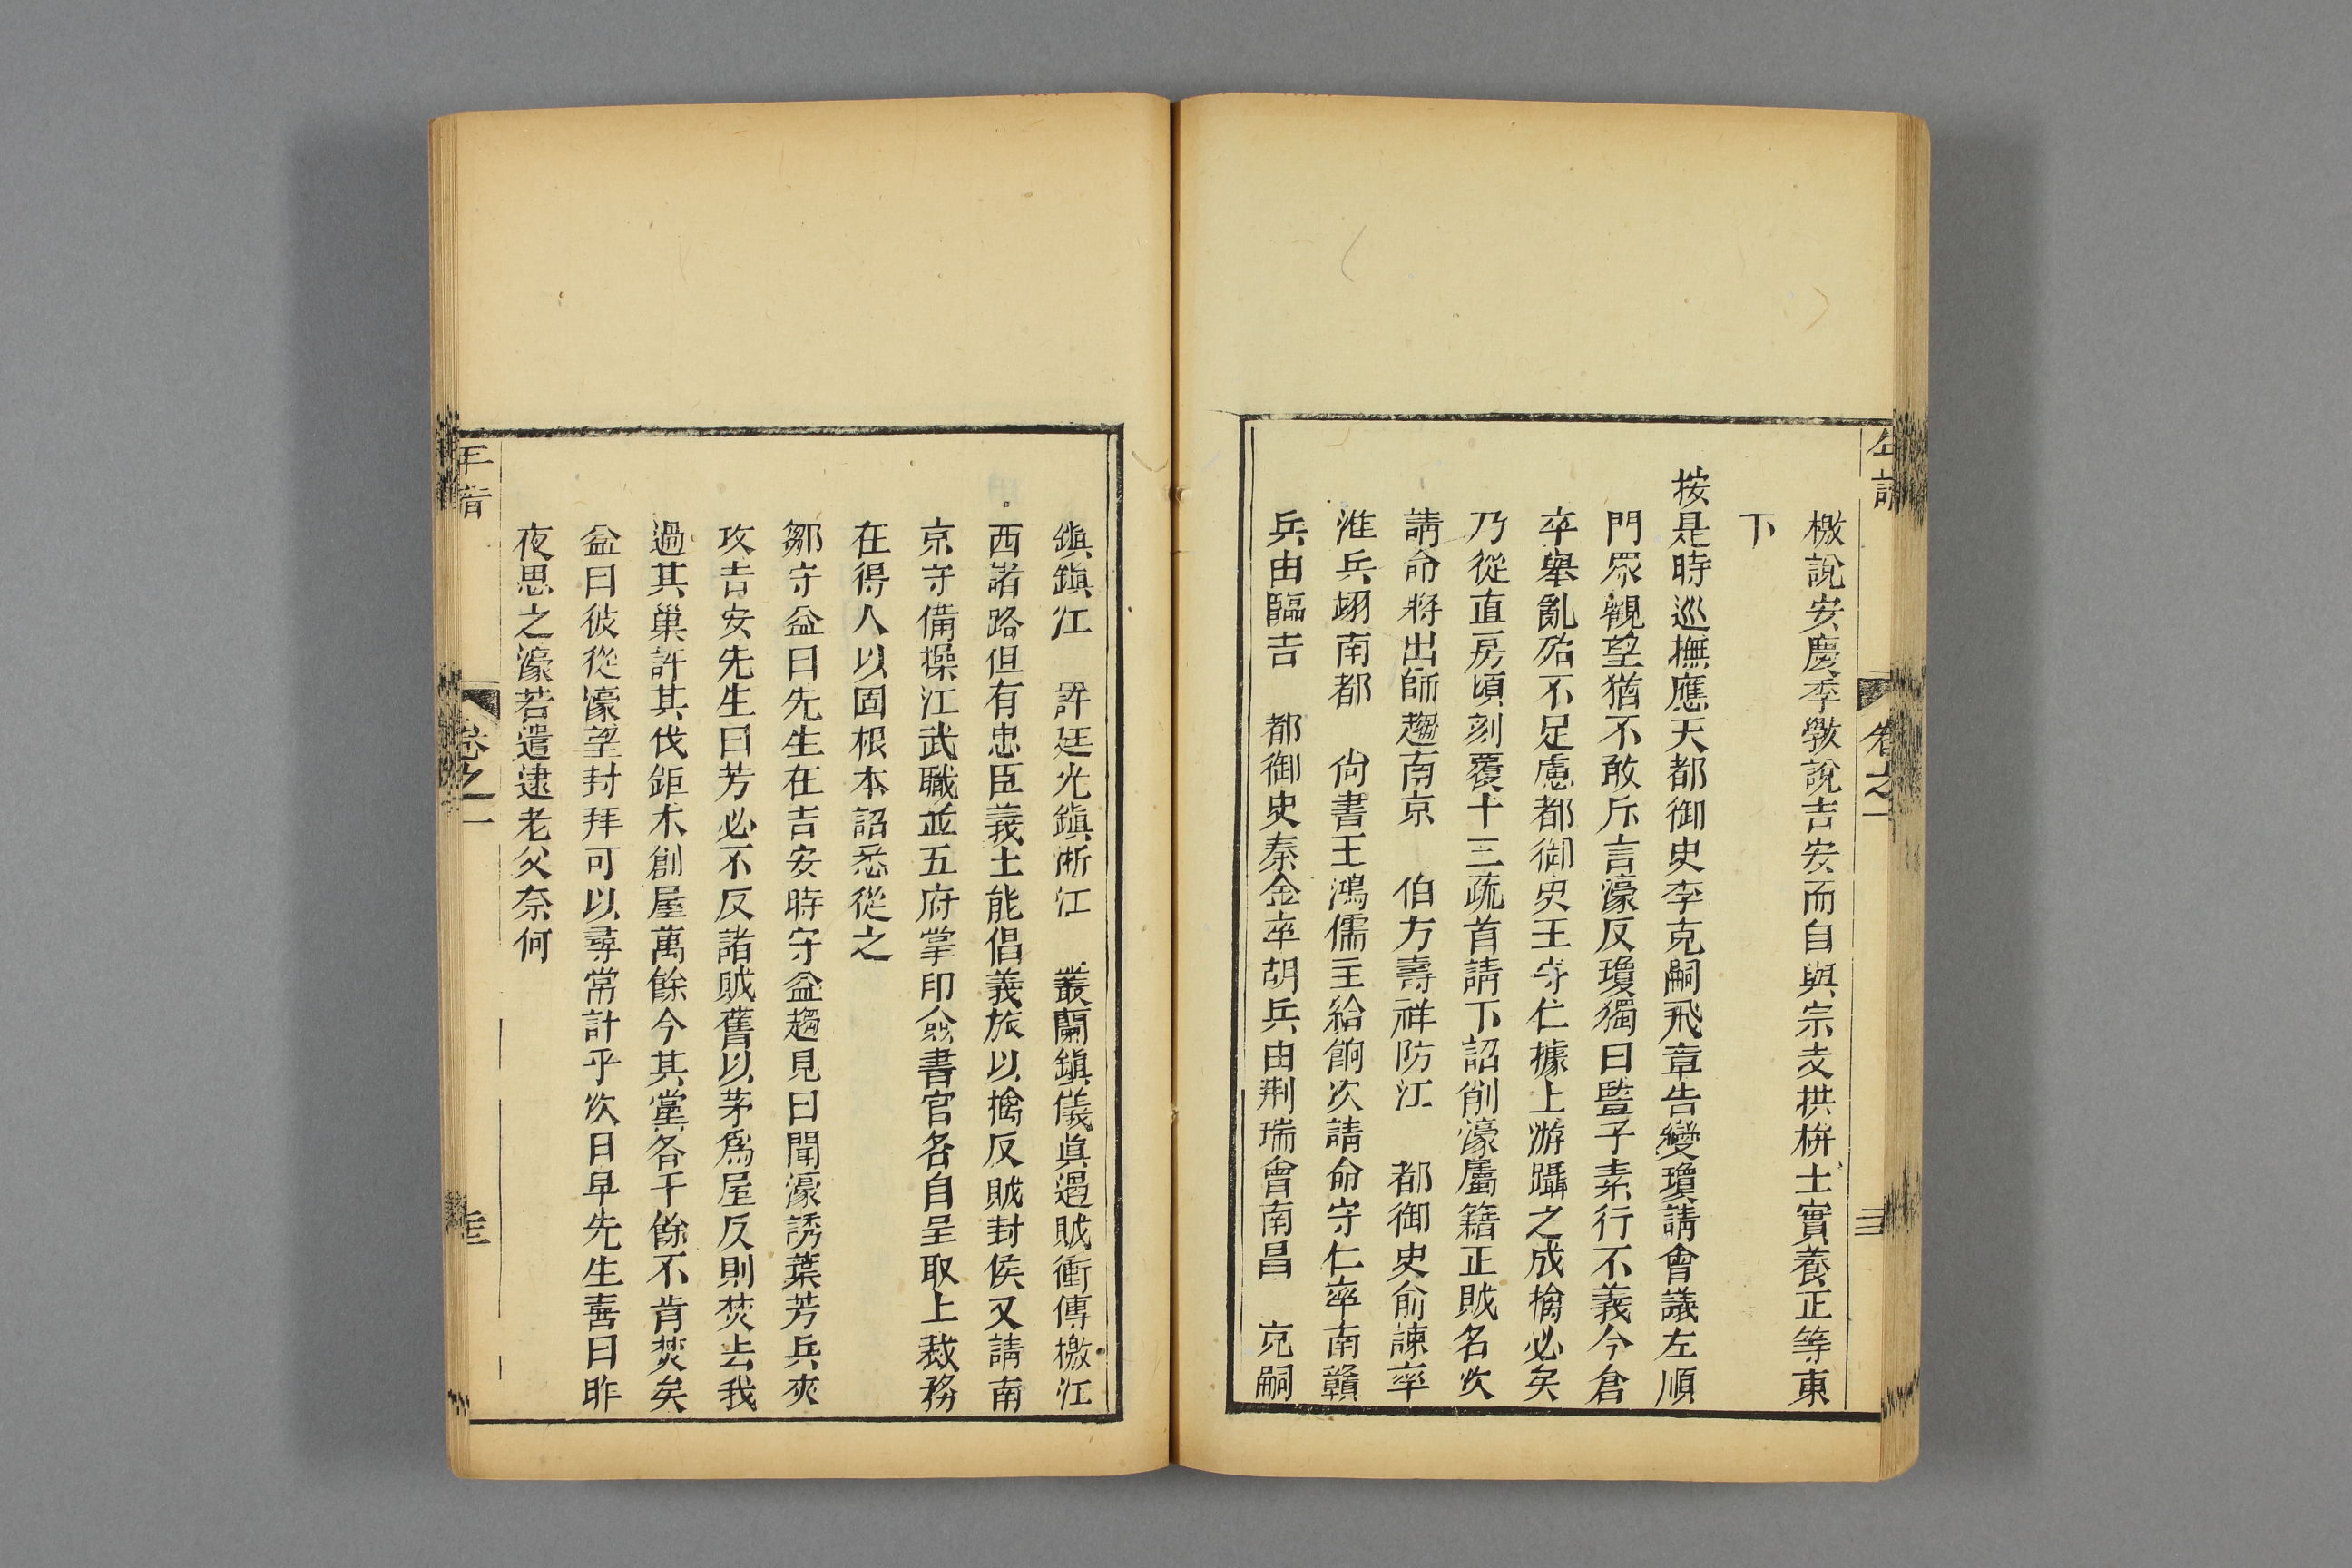 年譜 卷之一 三
檄說安慶季斆說吉安而自與宗支拱栟士實養正等東
下
按是時巡撫應天都御史李克嗣飛章告變瓊請會議左順
門眾觀望猶不敢斥言濠反瓊獨曰豎子素行不義今倉
卒舉亂殆不足慮都御史王守仁據上游躡之成擒必矣
乃從直房頃刻覆十三疏首請下詔削濠屬籍正賊名次
請命將出師趨南京 伯方壽祥防江 都御史俞諫率
淮兵翊南都 尙書王鴻儒主給餉次請命守仁率南贛
兵由臨吉 都御史秦金率胡兵由荆瑞會南昌 克嗣
鎮鎮江 許廷光鎮浙江 叢蘭鎮儀眞遏賊衝傳檄江
西諸路但有忠臣義士能倡義旅以擒反賊封侯又請南
京守備操江武職並五府掌印僉書官各自呈取上裁務
在得人以固根本詔悉從之
鄒守益曰先生在吉安時守益趨見曰聞濠誘葉芳兵夾
攻吉安先生曰芳必不反諸賊舊以茅爲屋反則焚去我
過其巢許其伐鉅木創屋萬餘今其黨各千餘不肯焚矣
益曰彼從濠望封拜可以尋常計乎次日早先生喜曰昨
夜思之濠若遣逮老父奈何
年譜 卷之一